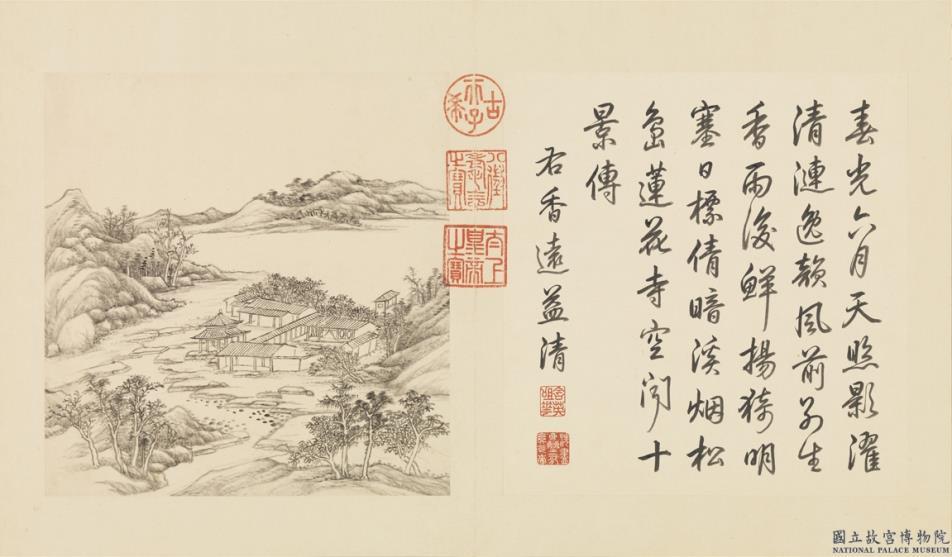 春光六月天照影濯
清漣逸韻風前別生
香雨後鮮揚猗明
塞日標倩暗溪烟松
嵒蓮花寺空聞十
景傳
右香遠益清
古希天子
八徵耄念之寶
太上皇帝之寶
國立故宮博物院
NATIONAL PALACE MUSEUM